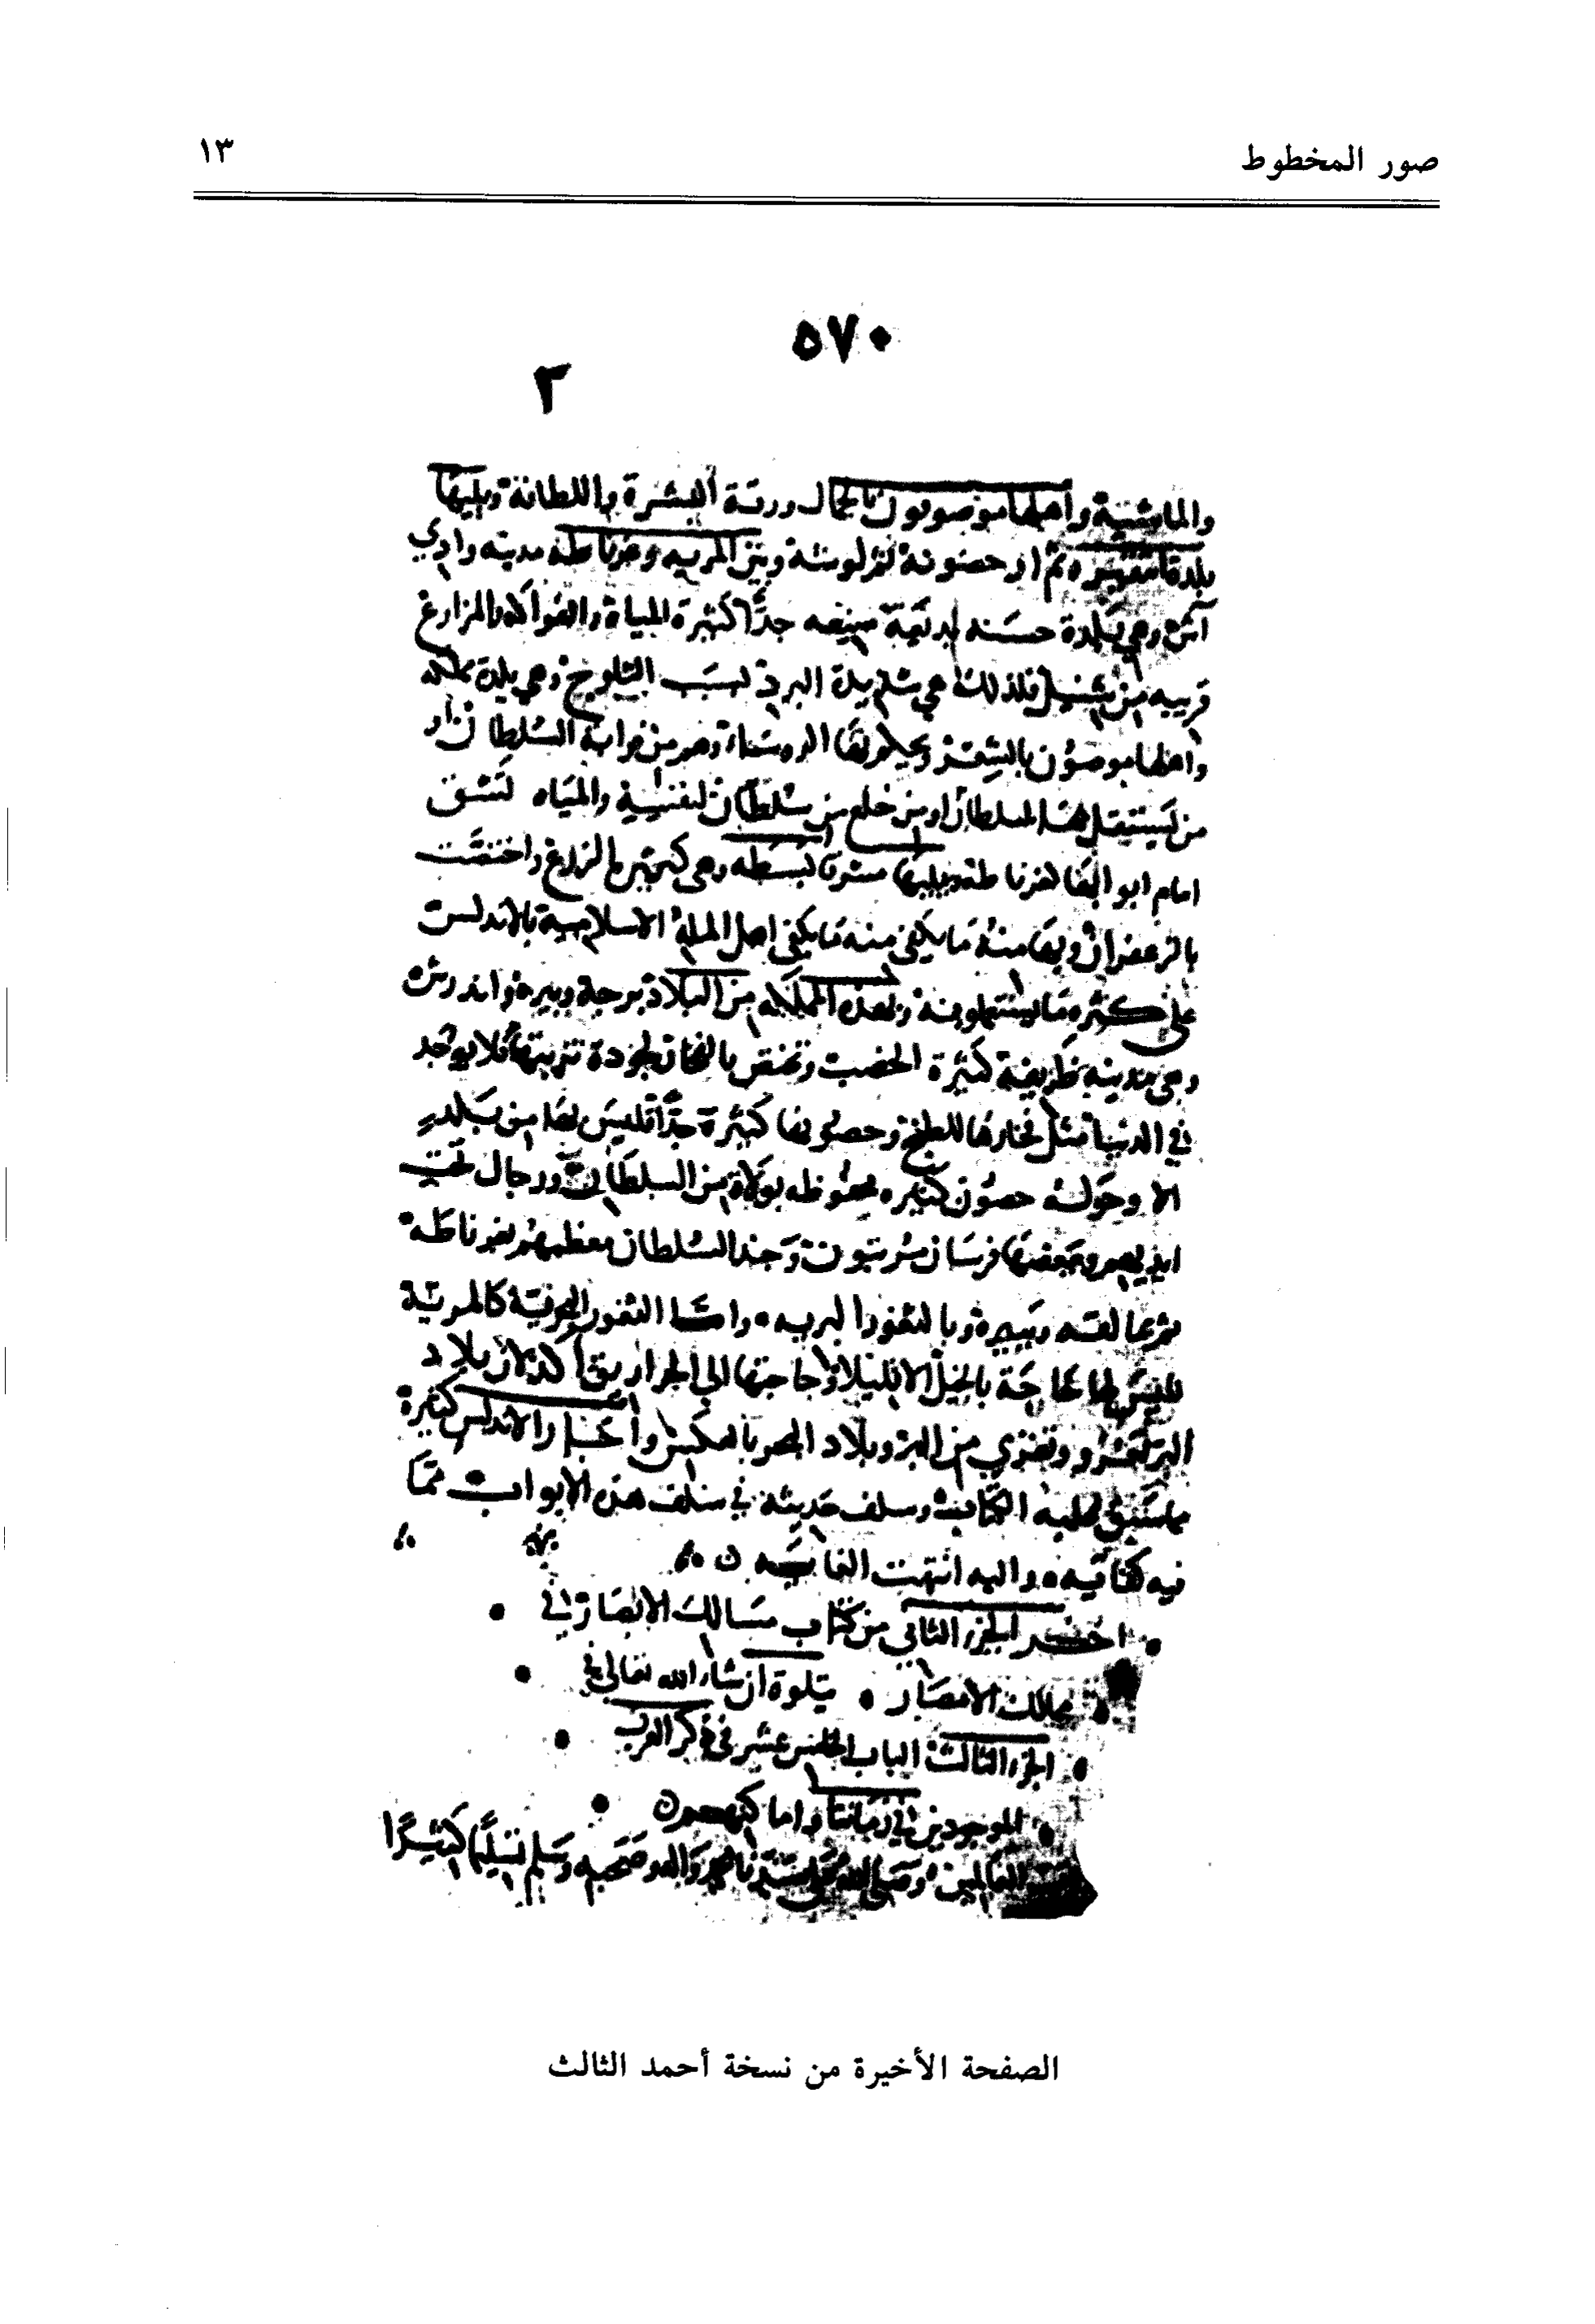 صور المخطوط
١٣
٥٧٠
٢
والماشية وأهلها موصوفون بالجمال ورقة البشرة واللطافة ويليها
بلدة ثم أرحضونة ثم لوشة وبين المرية وغرناطة مدينة وادي
آش وهي بلدة حسنة بديعة منيعة جدًا كثيرة المياه والفواكه والمزارع
قريبة من شنيل فلذلك هي شديدة البرد بسبب الثلوج وهي بلدة مملكة
واهلها موصوفون بالشعر ويحكم بها الروساء وهم من قرابة السلطان أو
من يستقل بها السلطان أو من خلع من سلطان لنفسه والمياه تشق
امام ابوابها لغرناطة ويليها مشرقا بسطة وهي كثيرة الزرع واختصت
بالزعفران وبها منه ما يكفي اهل الملة الاسلامية بالاندلس
على كثرة ما يستعملونه ولهذه المملكة من البلاد برجة وبيرة واندرش
وهي مدينة ظريفة كثيرة الخصب وتختص بالفخار لجودة تربتها فلا يوجد
في الدنيا مثل فخارها للطبخ وحصونها كثيرة جدًا فليس بها من بلد
الا وحوله حصون كثيرة محفوظة بولاة من السلطان ورجال تحت
ايديهم وببعضها فرسان مرتبون وجند السلطان معظمهم بغرناطة
ثم بمالقة وبيرة وبالثغور البرية ٠ واما الثغور البحرية كالمرية
فليس لها حاجة بالخيل الا قليلا وحاجتها الى الجواريق أكد لان بلاد
البر تغزو وتغزي من البر وبلاد البحر بالعكس وأخبار الاندلس كثيرة
وسلف حديثه في سلف هذه الابواب مما
فيه كفاية ٠ واليه انتهت الغاية
اخر الجزء الثاني من كتاب مسالك الابصار في
ممالك الامصار ٠ يتلوه ان شاء الله تعالى في
الجزء الثالث الباب الخامس عشر في ذكر العرب
الموجودين في زماننا واماكنهم
العالمين وصلى الله على سيدنا محمد واله وصحبه وسلم تسليمًا كثيرًا
الصفحة الأخيرة من نسخة أحمد الثالث